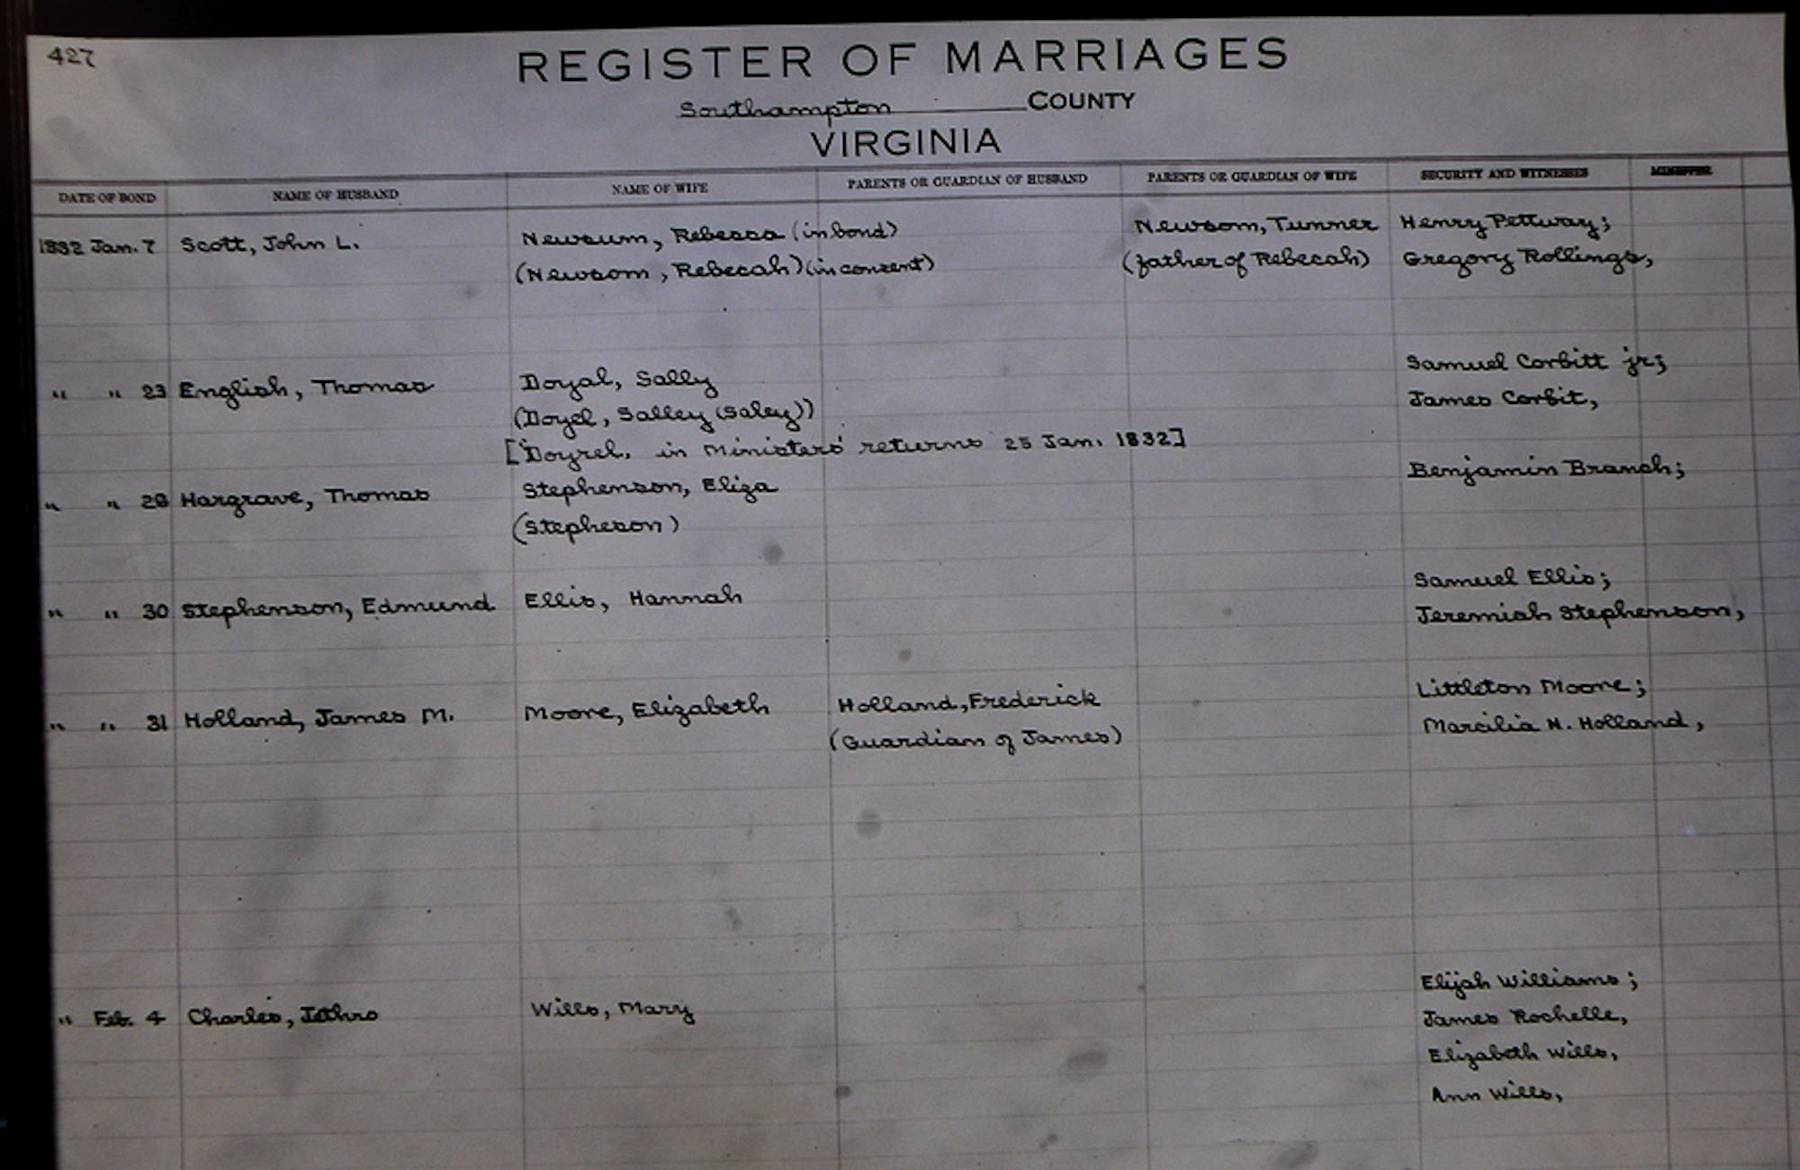 427
REGISTER OF MARRIAGES
Southampton COUNTY
VIRGINIA
DATE OF BOND NAME OF HUSBAND NAME OF WIFE PARENTS OR GUARDIAN OF HUSBAND PARENTS OR GUARDIAN OF WIFE SECURITY AND WITNESSES MINISTER
1832 Jan. 7 Scott, John L. Newsum, Rebecca (in bond) Newsom, Tumner Henry Pettway;
(Newsom, Rebecah) (in consent) (father of Rebecah) Gregory Rollings,
" " 23 English, Thomas Doyal, Sally Samuel Corbitt jr;
(Doyel, Salley (Saley)) James Corbit,
["Doyrel, in Ministers' returns 25 Jan. 1832]
" " 28 Hargrave, Thomas Stephenson, Eliza Benjamin Branch;
(Stepheson)
" " 30 Stephenson, Edmund Ellis, Hannah Samuel Ellis;
Jeremiah Stephenson,
" " 31 Holland, James M. Moore, Elizabeth Holland, Frederick Littleton Moore;
(Guardian of James) Marcilia H. Holland,
" Feb. 4 Charles, Jethro Wills, Mary Elijah Williams;
James Rochelle,
Elizabeth Wills,
Ann Wills,